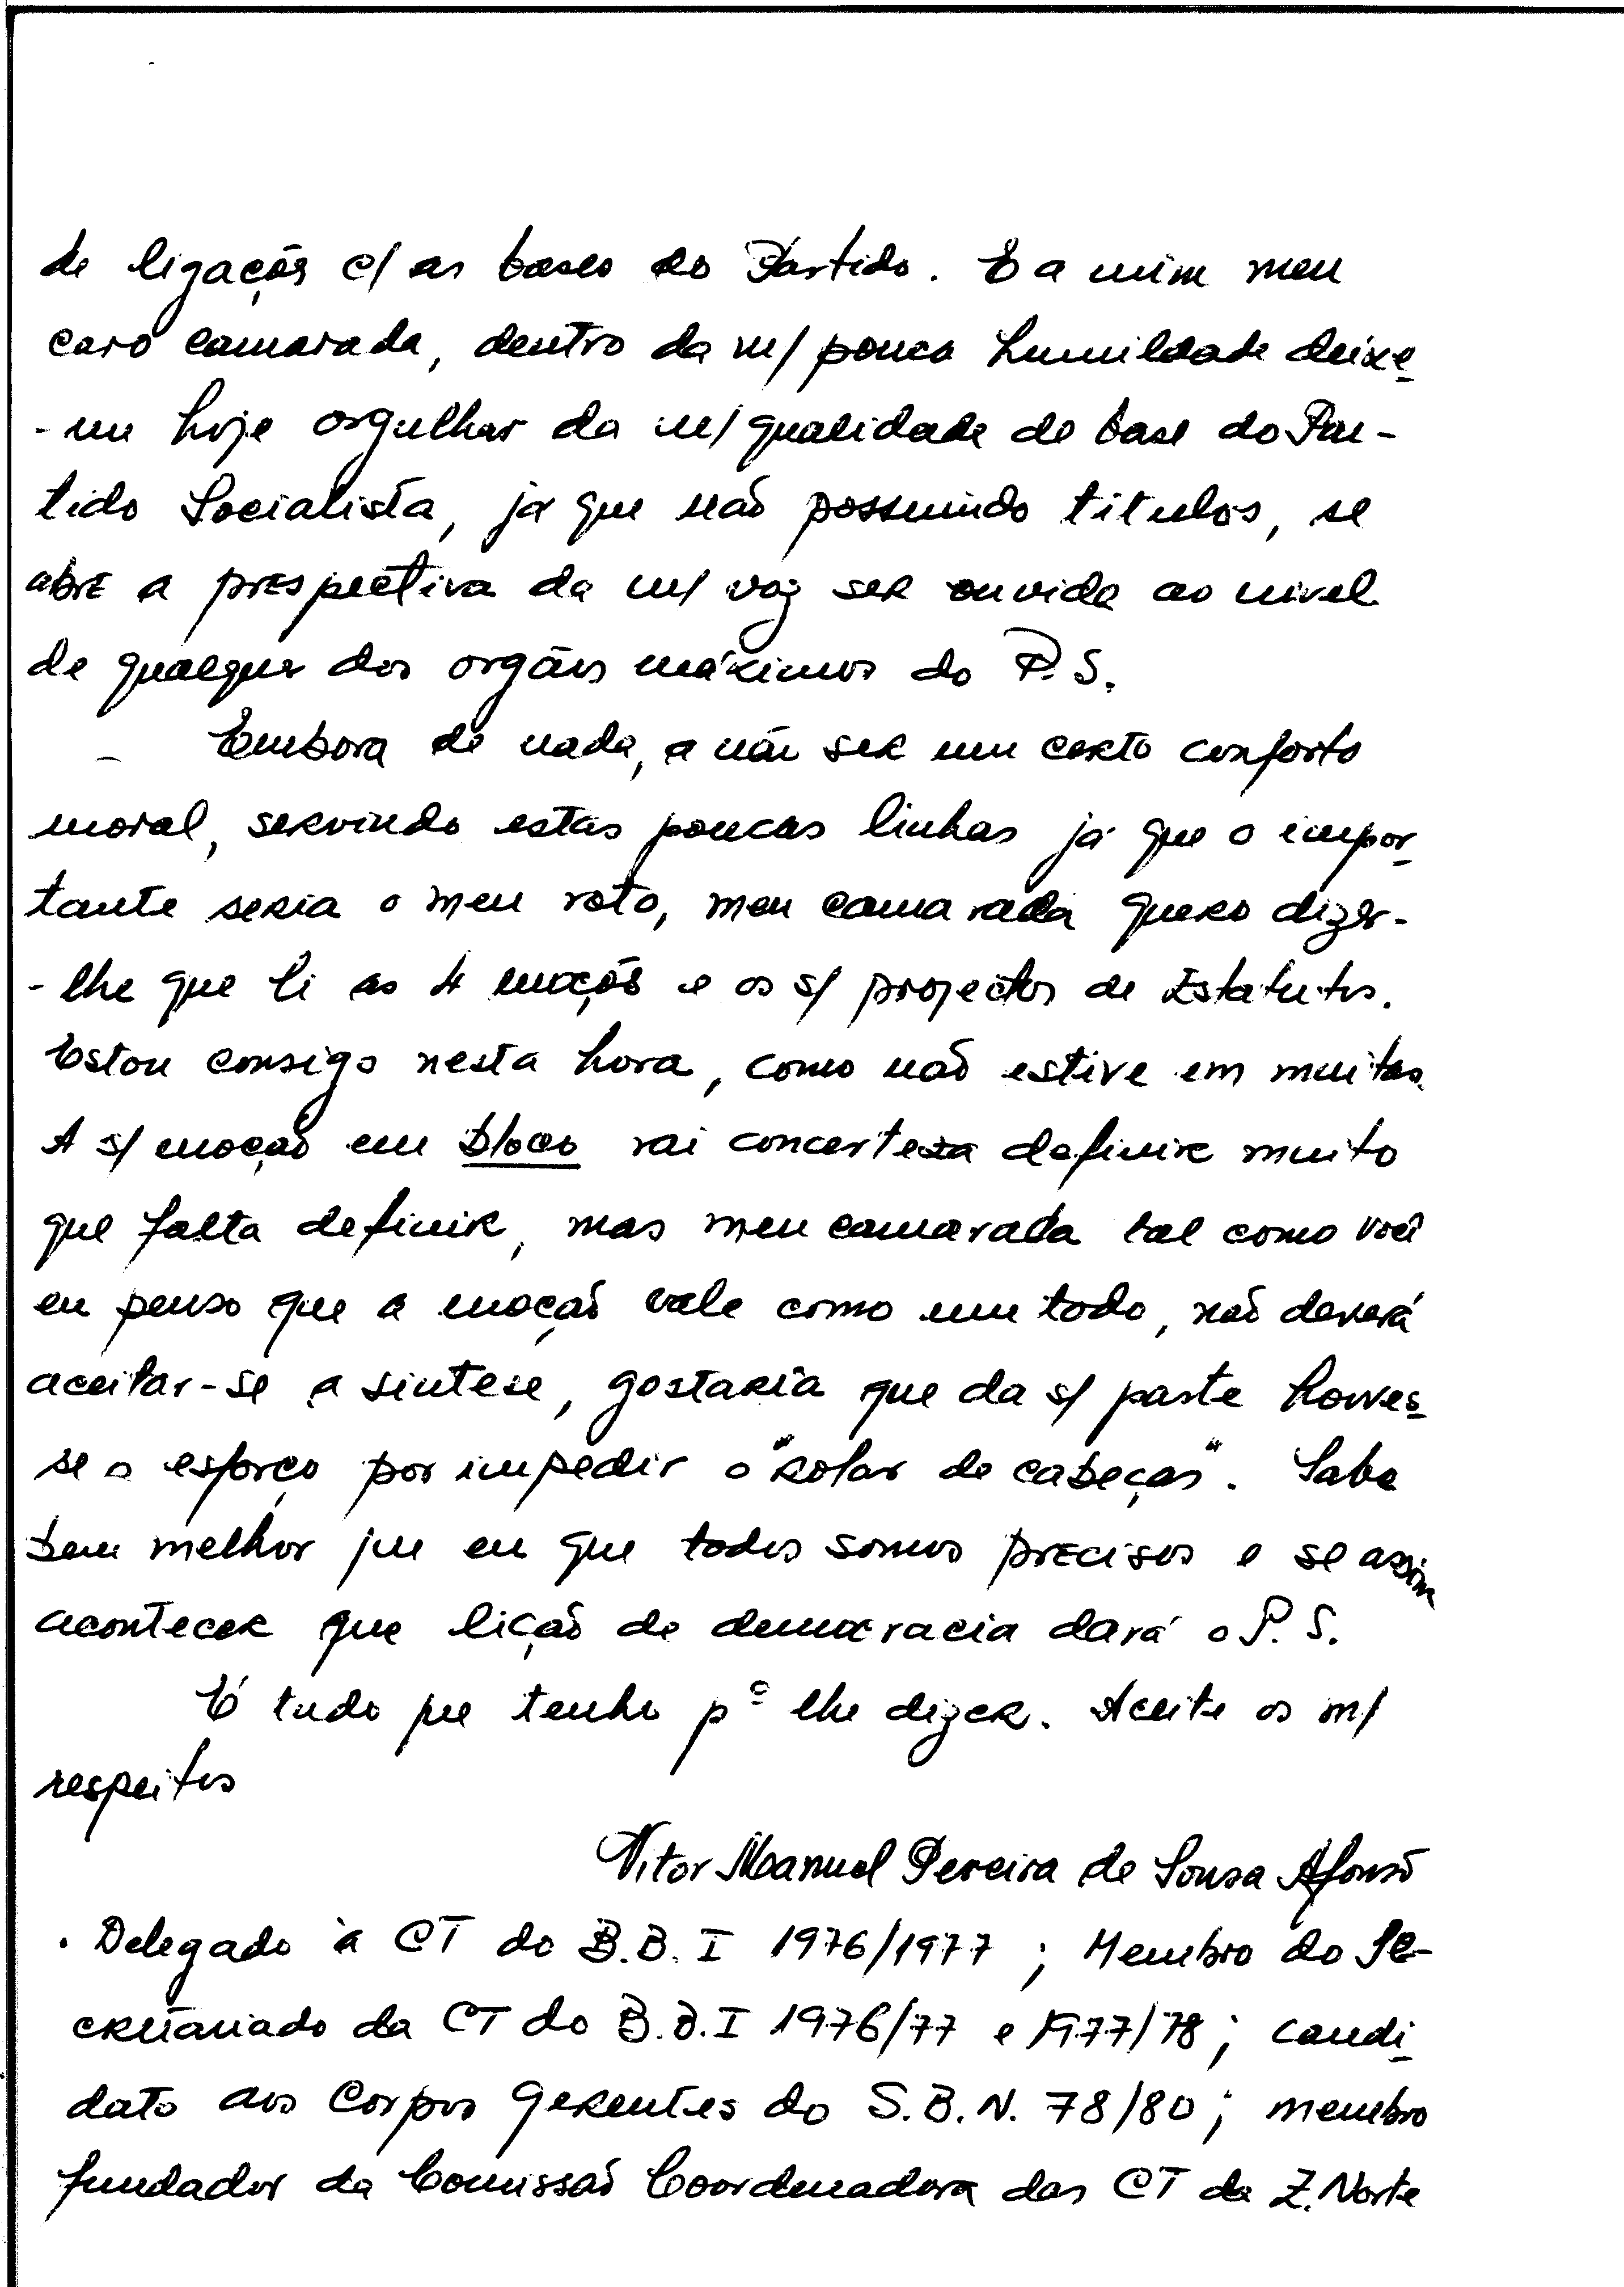 de ligação c/ as bases do Partido. E a mim meu
caro camarada, dentro da m/ pouca humildade deixe
-me hoje orgulhar da m/ qualidade de base do Par-
tido Socialista, já que não possuindo titulos, se
abre a prespectiva da m/ voz ser ouvida ao nivel
de qualquer dos orgãos máximos do P.S.
Embora de nada, a não ser um certo conforto
moral, servindo estas poucas linhas já que o impor
tante seria o meu voto, meu camarada quero dizer-
-lhe que li as 4 moções e os s/ projectos de Estatutos.
Estou consigo nesta hora, como não estive em muitas.
A s/ moção em bloco vai concerteza definir muito
que falta definir, mas meu camarada tal como você
eu penso que a moção vale como um todo, não deverá
aceitar-se a sintese, gostaria que da s/ parte houves
se o esforço por impedir o "rolar de cabeças". Sabe
bem melhor que eu que todos somos precisos e se assim
acontecer que lição de democracia dará o P.S.
É tudo que tenho pª lhe dizer. Aceite os m/
respeitos
Vitor Manuel Pereira de Sousa Afonso
. Delegado à CT do B.B.I 1976/1977 ; Membro do Se-
cretariado da CT do B.B.I 1976/77 e 1977/78 ; candi
dato aos Corpos Gerentes do S.B.N. 78/80 ; membro
fundador da Comissão Coordenadora das CT da Z. Norte